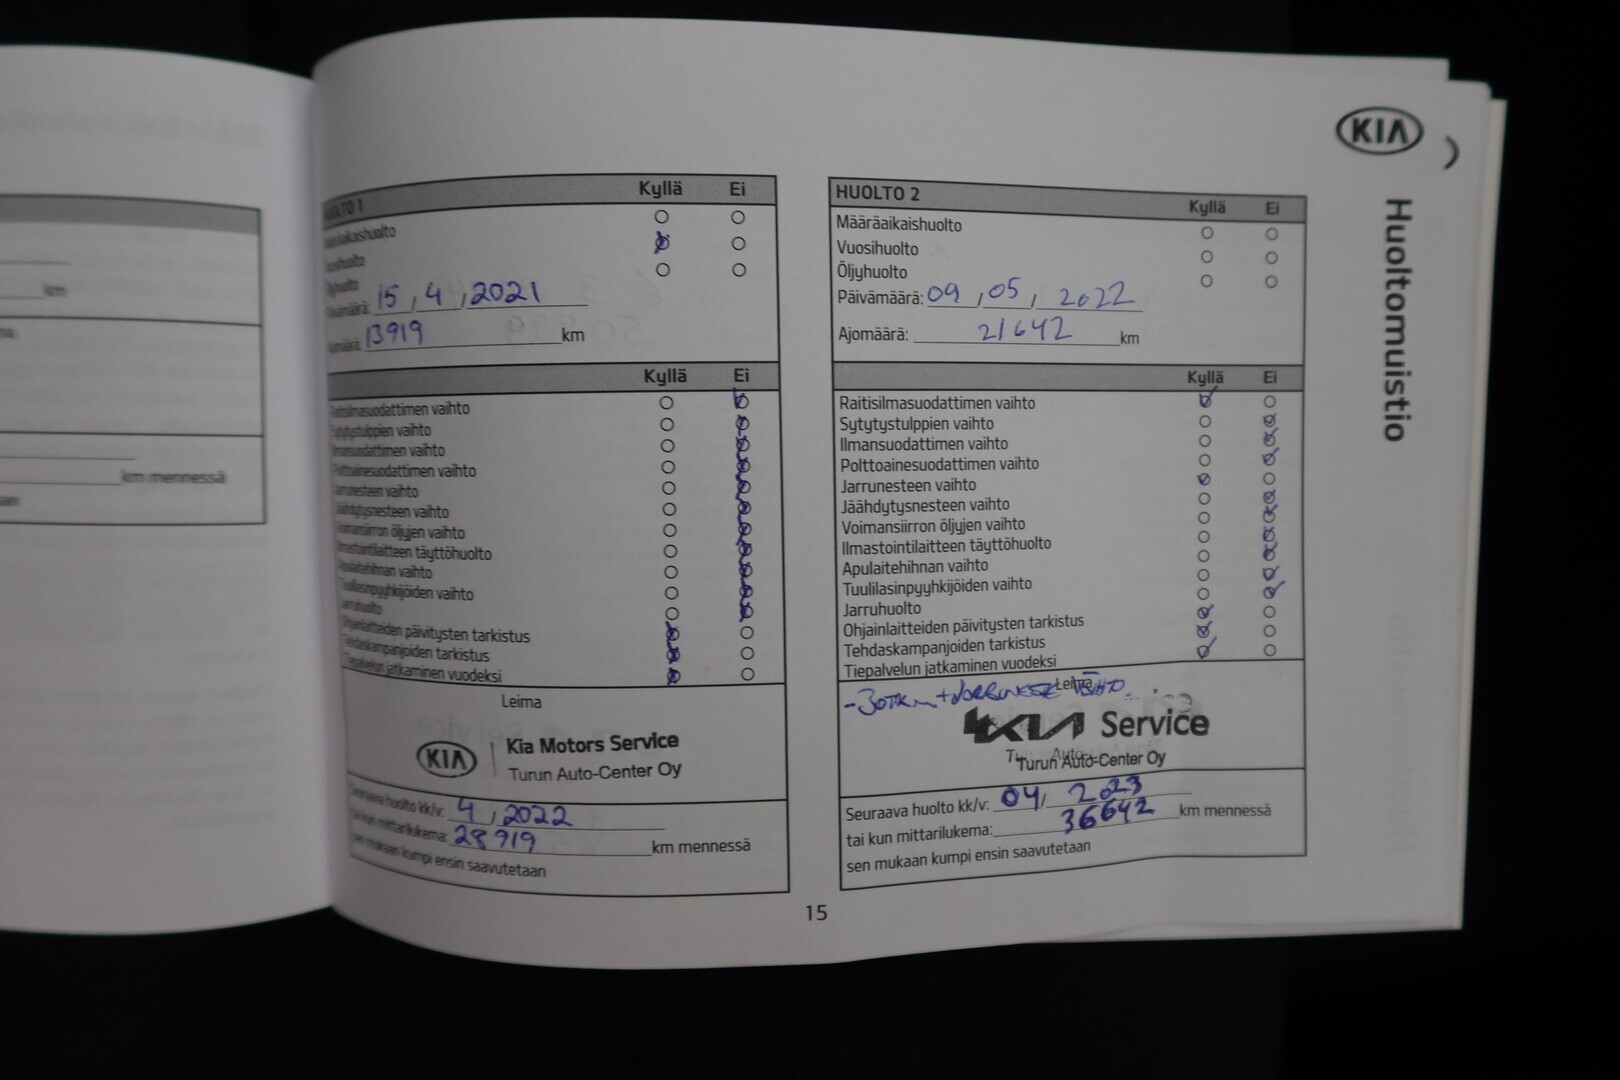 km
km mennessä
KIA
Huoltomuistio
Kyllä Ei
15, 4, 2021
13919 km
Kyllä Ei
Raitisilmasuodattimen vaihto
Sytytystulppien vaihto
Ilmansuodattimen vaihto
Polttoainesuodattimen vaihto
Jarrunesteen vaihto
Jäähdytysnesteen vaihto
Voimansiirron öljyjen vaihto
Ilmastointilaitteen täyttöhuolto
Apulaitehihnan vaihto
Tuulilasinpyyhkijöiden vaihto
Jarruhuolto
Ohjainlaitteiden päivitysten tarkistus
Tehdaskampanjoiden tarkistus
Tiepalvelun jatkaminen vuodeksi
Leima
KIA Kia Motors Service
Turun Auto-Center Oy
Seuraava huolto kk/v: 4, 2022
tai kun mittarilukema: 28919 km mennessä
sen mukaan kumpi ensin saavutetaan
HUOLTO 2 Kyllä Ei
Määräaikaishuolto
Vuosihuolto
Öljyhuolto
Päivämäärä: 09, 05, 2022
Ajomäärä: 21642 km
Kyllä Ei
Raitisilmasuodattimen vaihto
Sytytystulppien vaihto
Ilmansuodattimen vaihto
Polttoainesuodattimen vaihto
Jarrunesteen vaihto
Jäähdytysnesteen vaihto
Voimansiirron öljyjen vaihto
Ilmastointilaitteen täyttöhuolto
Apulaitehihnan vaihto
Tuulilasinpyyhkijöiden vaihto
Jarruhuolto
Ohjainlaitteiden päivitysten tarkistus
Tehdaskampanjoiden tarkistus
Tiepalvelun jatkaminen vuodeksi
Leima
KIA Service
Turun Auto-Center Oy
Seuraava huolto kk/v: 04, 2023
tai kun mittarilukema: 36642 km mennessä
sen mukaan kumpi ensin saavutetaan
15